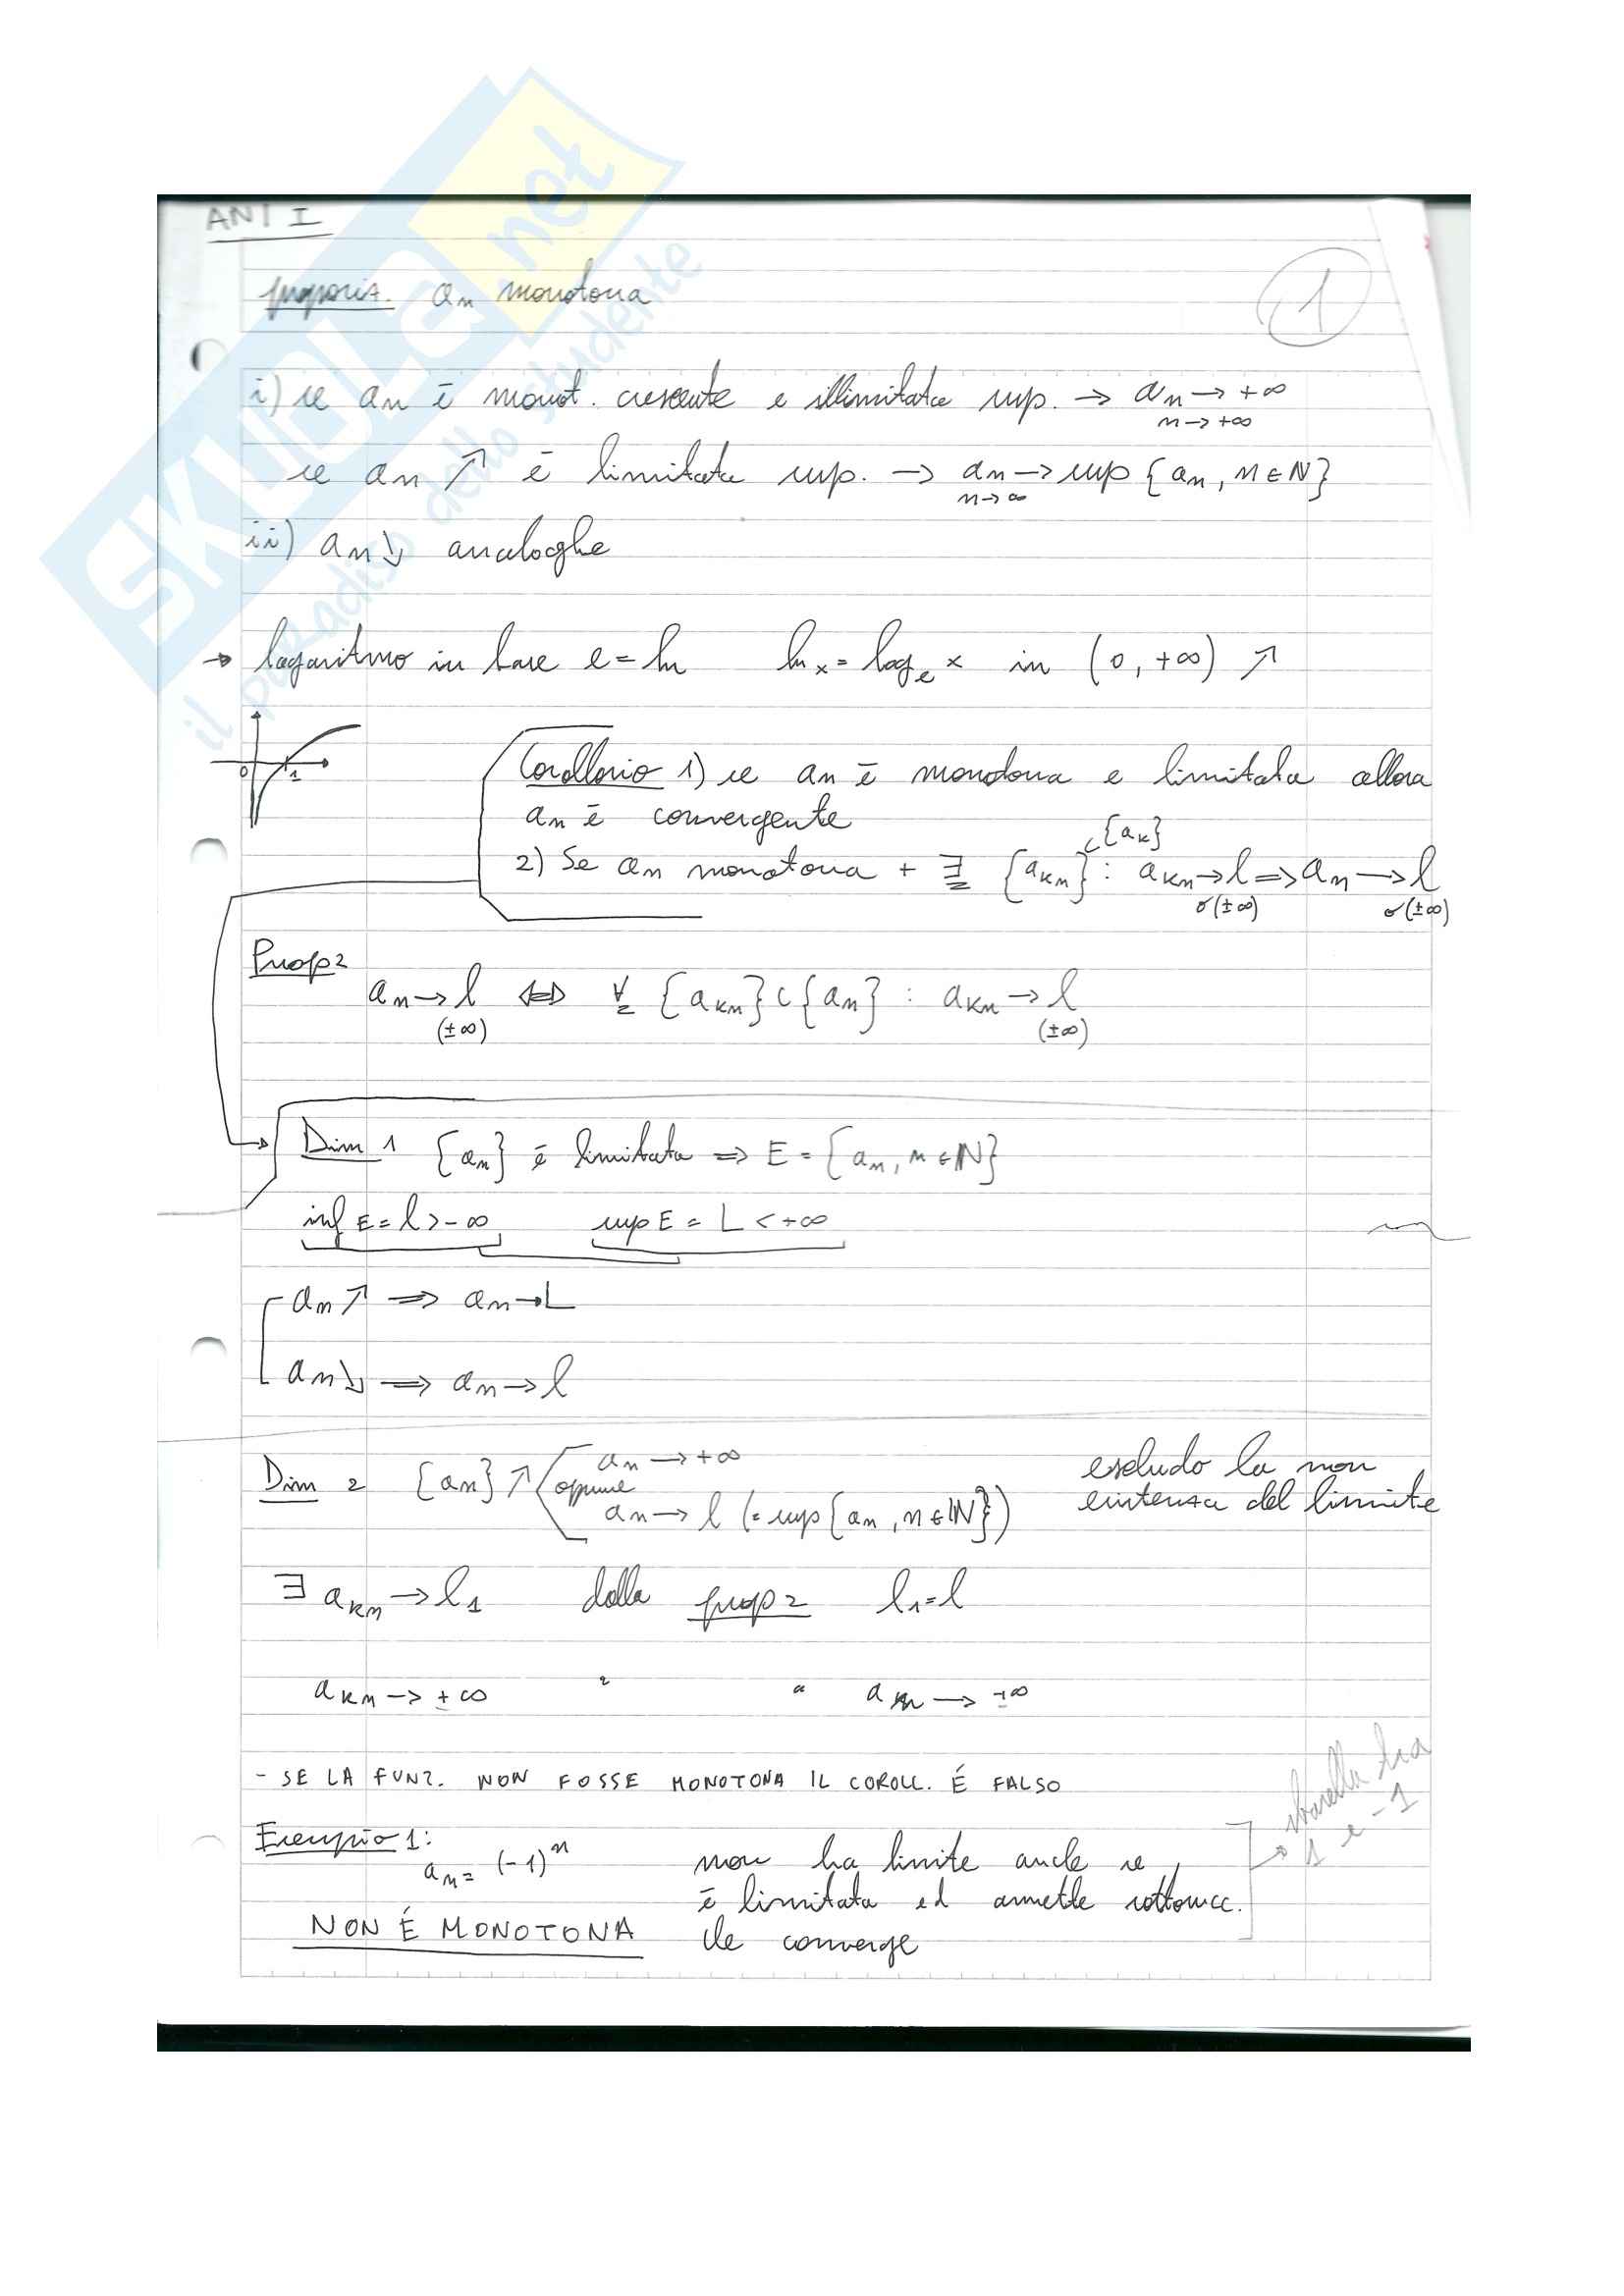 SKUOLA.net
il paradiso dello studente
AN I
1
proposiz. an monotona
i) se an è monot. crescente e illimitata sup. → an → +∞
n→+∞
se an ↗ è limitata sup. → an → sup {an, n∈N}
n→∞
ii) an ↘ analoghe
→ logaritmo in base e = ln   ln x = log_e x in (0, +∞) ↗
0 1
Corollario 1) se an è monotona e limitata allora
an è convergente
⊂{ak}
2) Se an monotona + ∃ {akn} : akn → l => an → l
o(±∞) o(±∞)
Prop2
an → l <=> ∀ {akn} ⊂ {an} : akn → l
(±∞) (±∞)
Dim 1 {an} è limitata => E = {an, n∈N}
inf E = l > -∞   sup E = L < +∞
an ↗ => an → L
an ↘ => an → l
Dim 2 {an} ↗ an → +∞
oppure
an → l (= sup{an, n∈N})
escludo la non
esistenza del limite
∃ akn → l1 dalla prop2 l1 = l
akn → ±∞ " " akn → ±∞
- SE LA FUNZ. NON FOSSE MONOTONA IL COROLL. É FALSO
Esempio 1:
an = (-1)^n
NON É MONOTONA
non ha limite anche se
è limitata ed ammette sottosucc.
che converge
→ sbarella tra
1 e -1